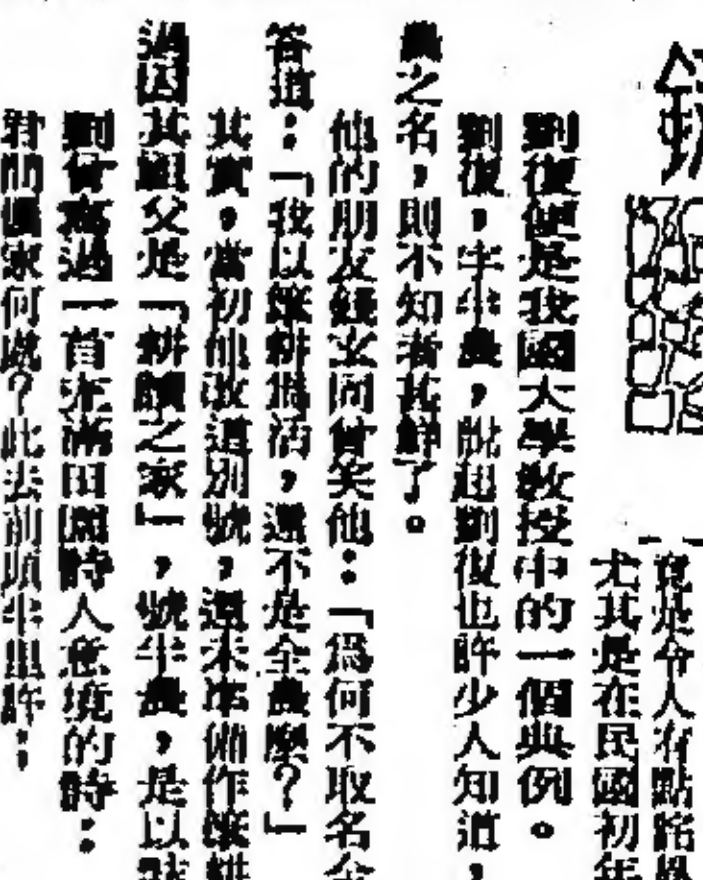 竟是令人有點
尤其是在民國初年
劉復便是我國大學教授中的一個典例。
劉復，字半農，說起劉復也許少人知道，
農之名，則不知者甚鮮了。
他的朋友錢玄同曾笑他：「爲何不取名全
答道：「我以筆耕爲活，還不是全農麼？」
其實，當初他改道別號，還未準備作筆耕
過因其祖父是「耕讀之家」，號半農，是以
劉曾寫過一首充滿田園詩人意境的詩：
君問儂家何處？此去前頭半里許；